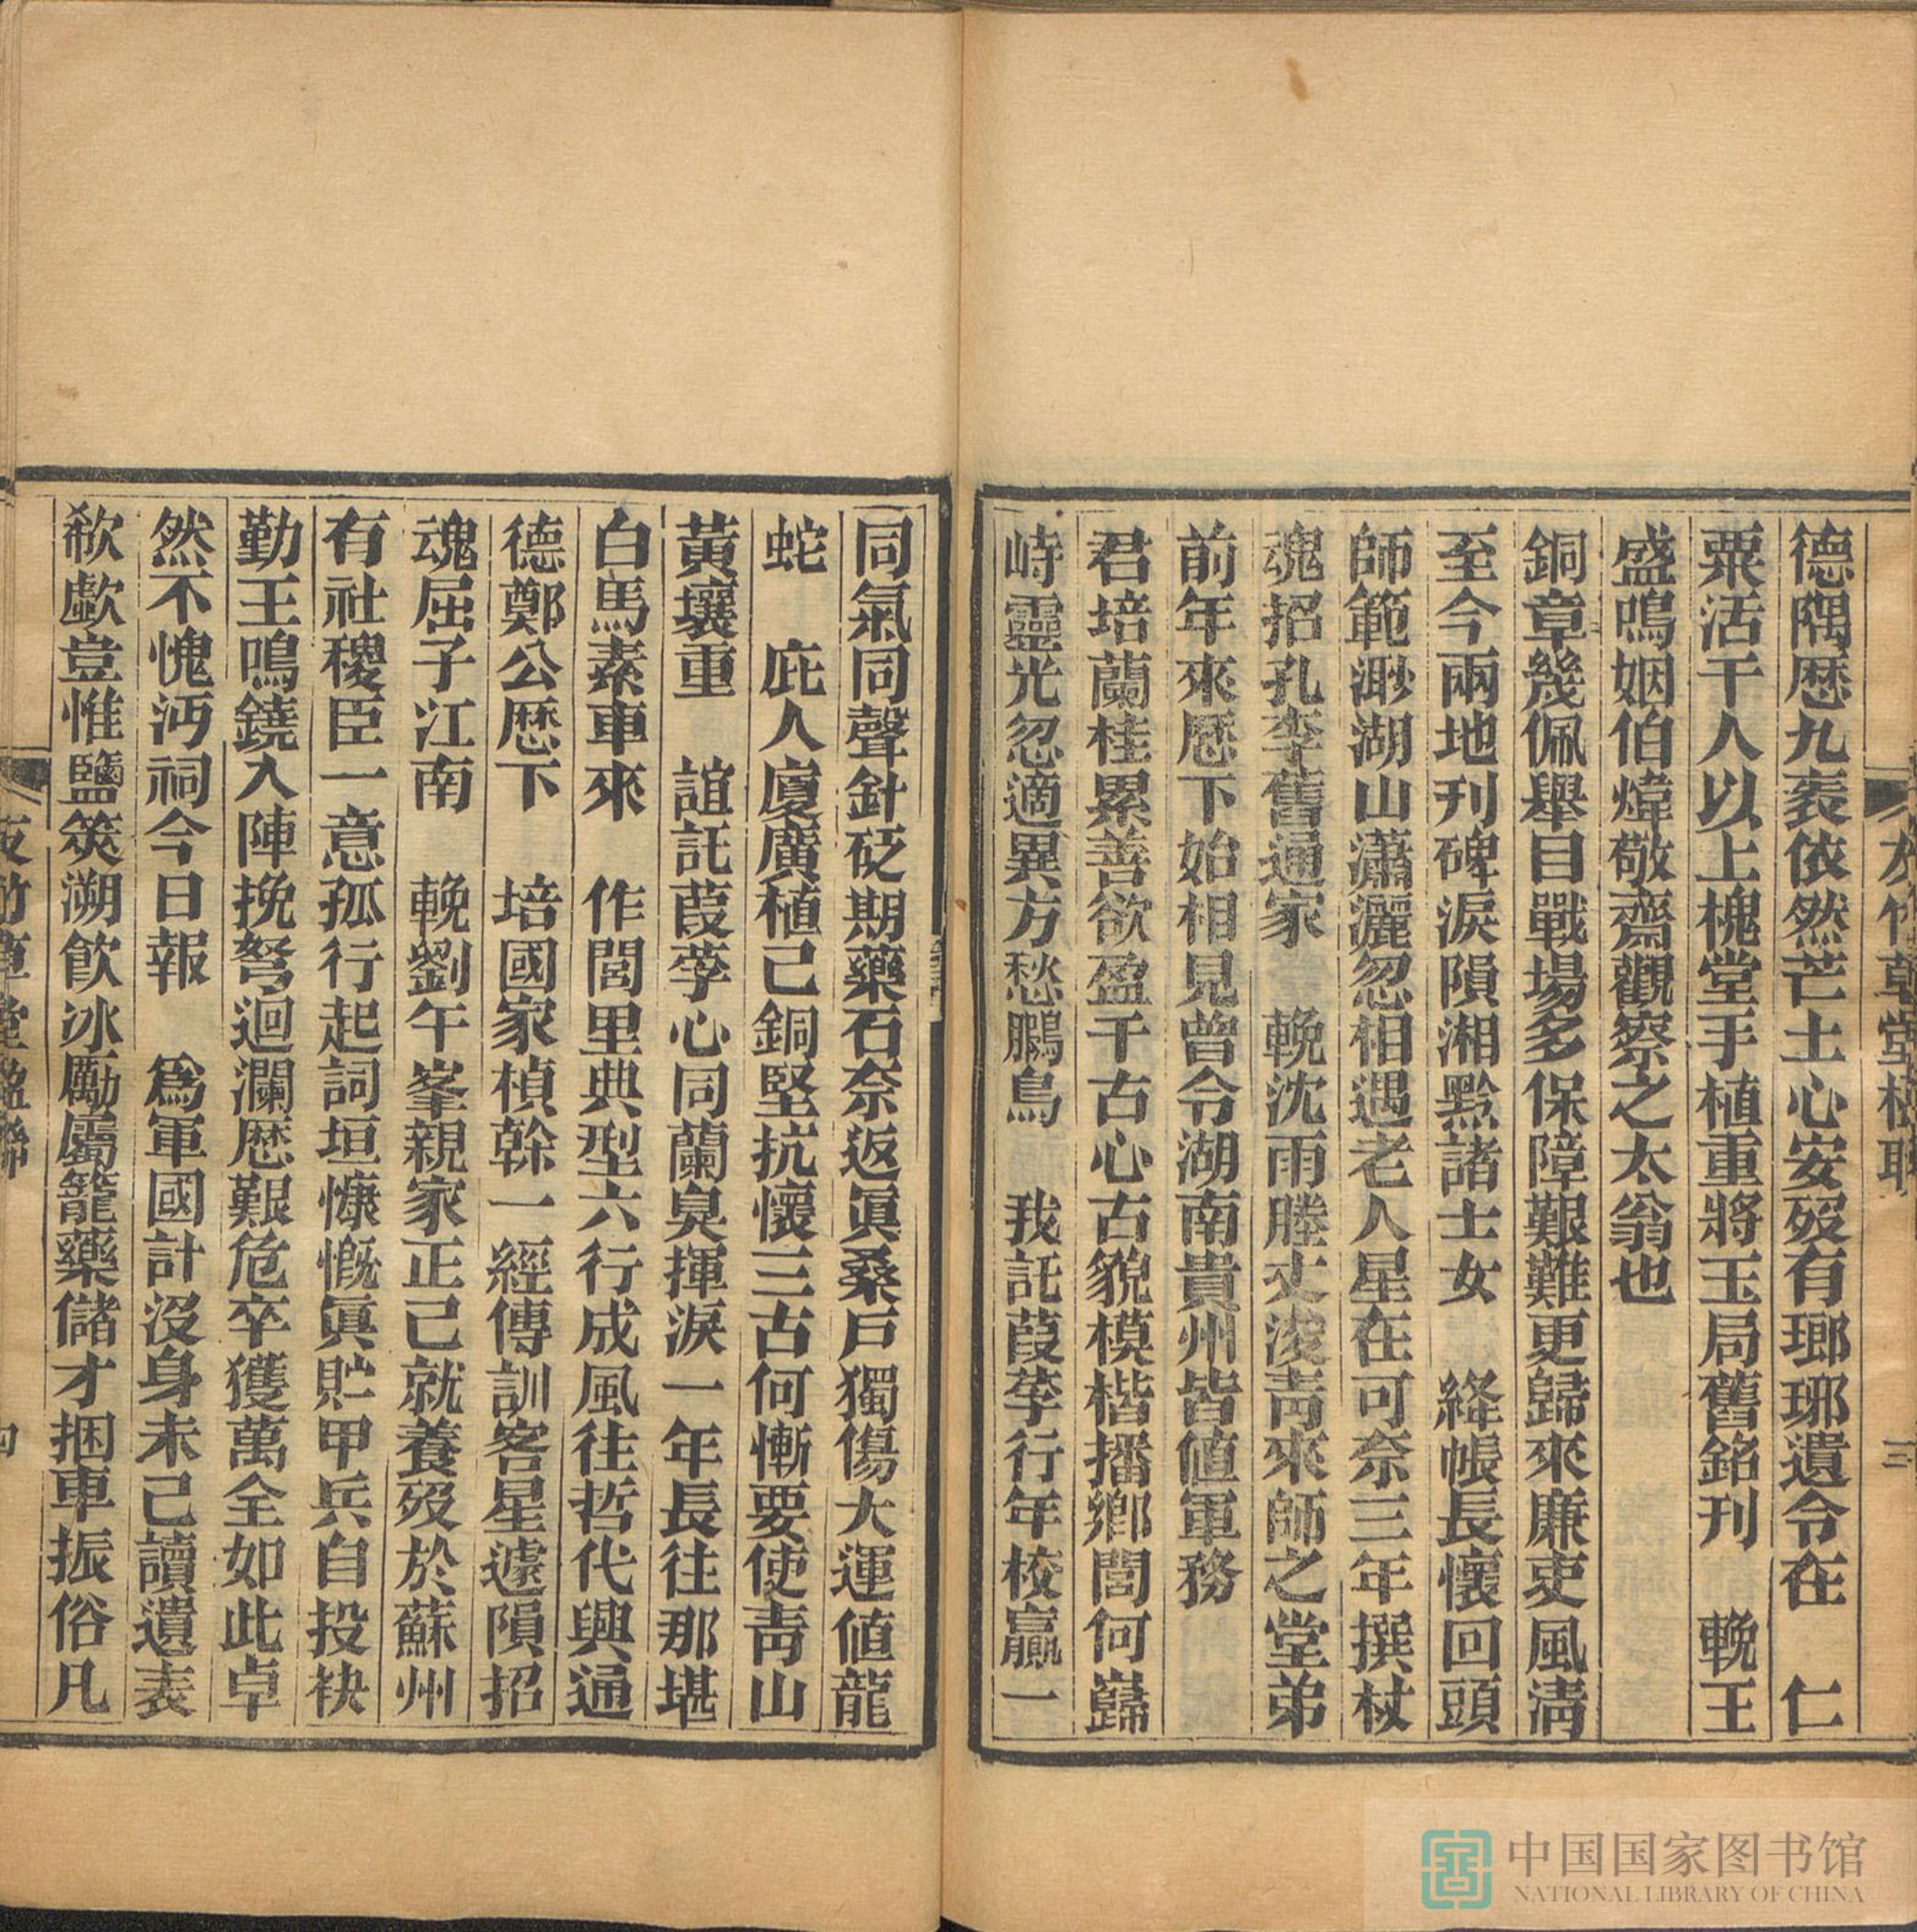 德隅歷九袠依然芒土心安歿有瑯琊遺令在　仁
粟活千人以上槐堂手植重將玉局舊銘刊　輓王
盛鳴姻伯煒敬齋觀察之太翁也
銅章幾佩舉目戰場多保障艱難更歸來廉吏風淸
至今兩地刋碑淚隕湘黔諸士女　絳帳長懷回頭
師範渺湖山瀟灑忽相遇老人星在可奈三年撰杖
魂招孔李舊通家　輓沈雨塍丈浚靑來師之堂弟
前年來歷下始相見曾令湖南貴州皆値軍務
君培蘭桂累善欲盈千古心古貌模楷播鄉閭何巋
峙靈光忽適異方愁鵩鳥　我託葭莩行年校贏一
同氣同聲針砭期藥石奈返眞桑戶獨傷大運値龍
蛇　庇人廈廣植己銅堅抗懷三古何慚要使靑山
黃壤重　誼託葭莩心同蘭臭揮淚一年長往那堪
白馬素車來　作閭里典型六行成風往哲代興通
德鄭公歷下　培國家楨幹一經傳訓客星遽隕招
魂屈子江南　輓劉午峯親家正己就養歿於蘇州
有社稷臣一意孤行起詞垣慷慨眞貯甲兵自投袂
勤王鳴鐃入陣挽弩迴瀾歷艱危卒獲萬全如此卓
然不愧沔祠今日報　爲軍國計沒身未已讀遺表
欷歔豈惟鹽筴溯飮冰勵屬籠藥儲才捆車振俗凡
三
中国国家图书馆
NATIONAL LIBRARY OF CHINA